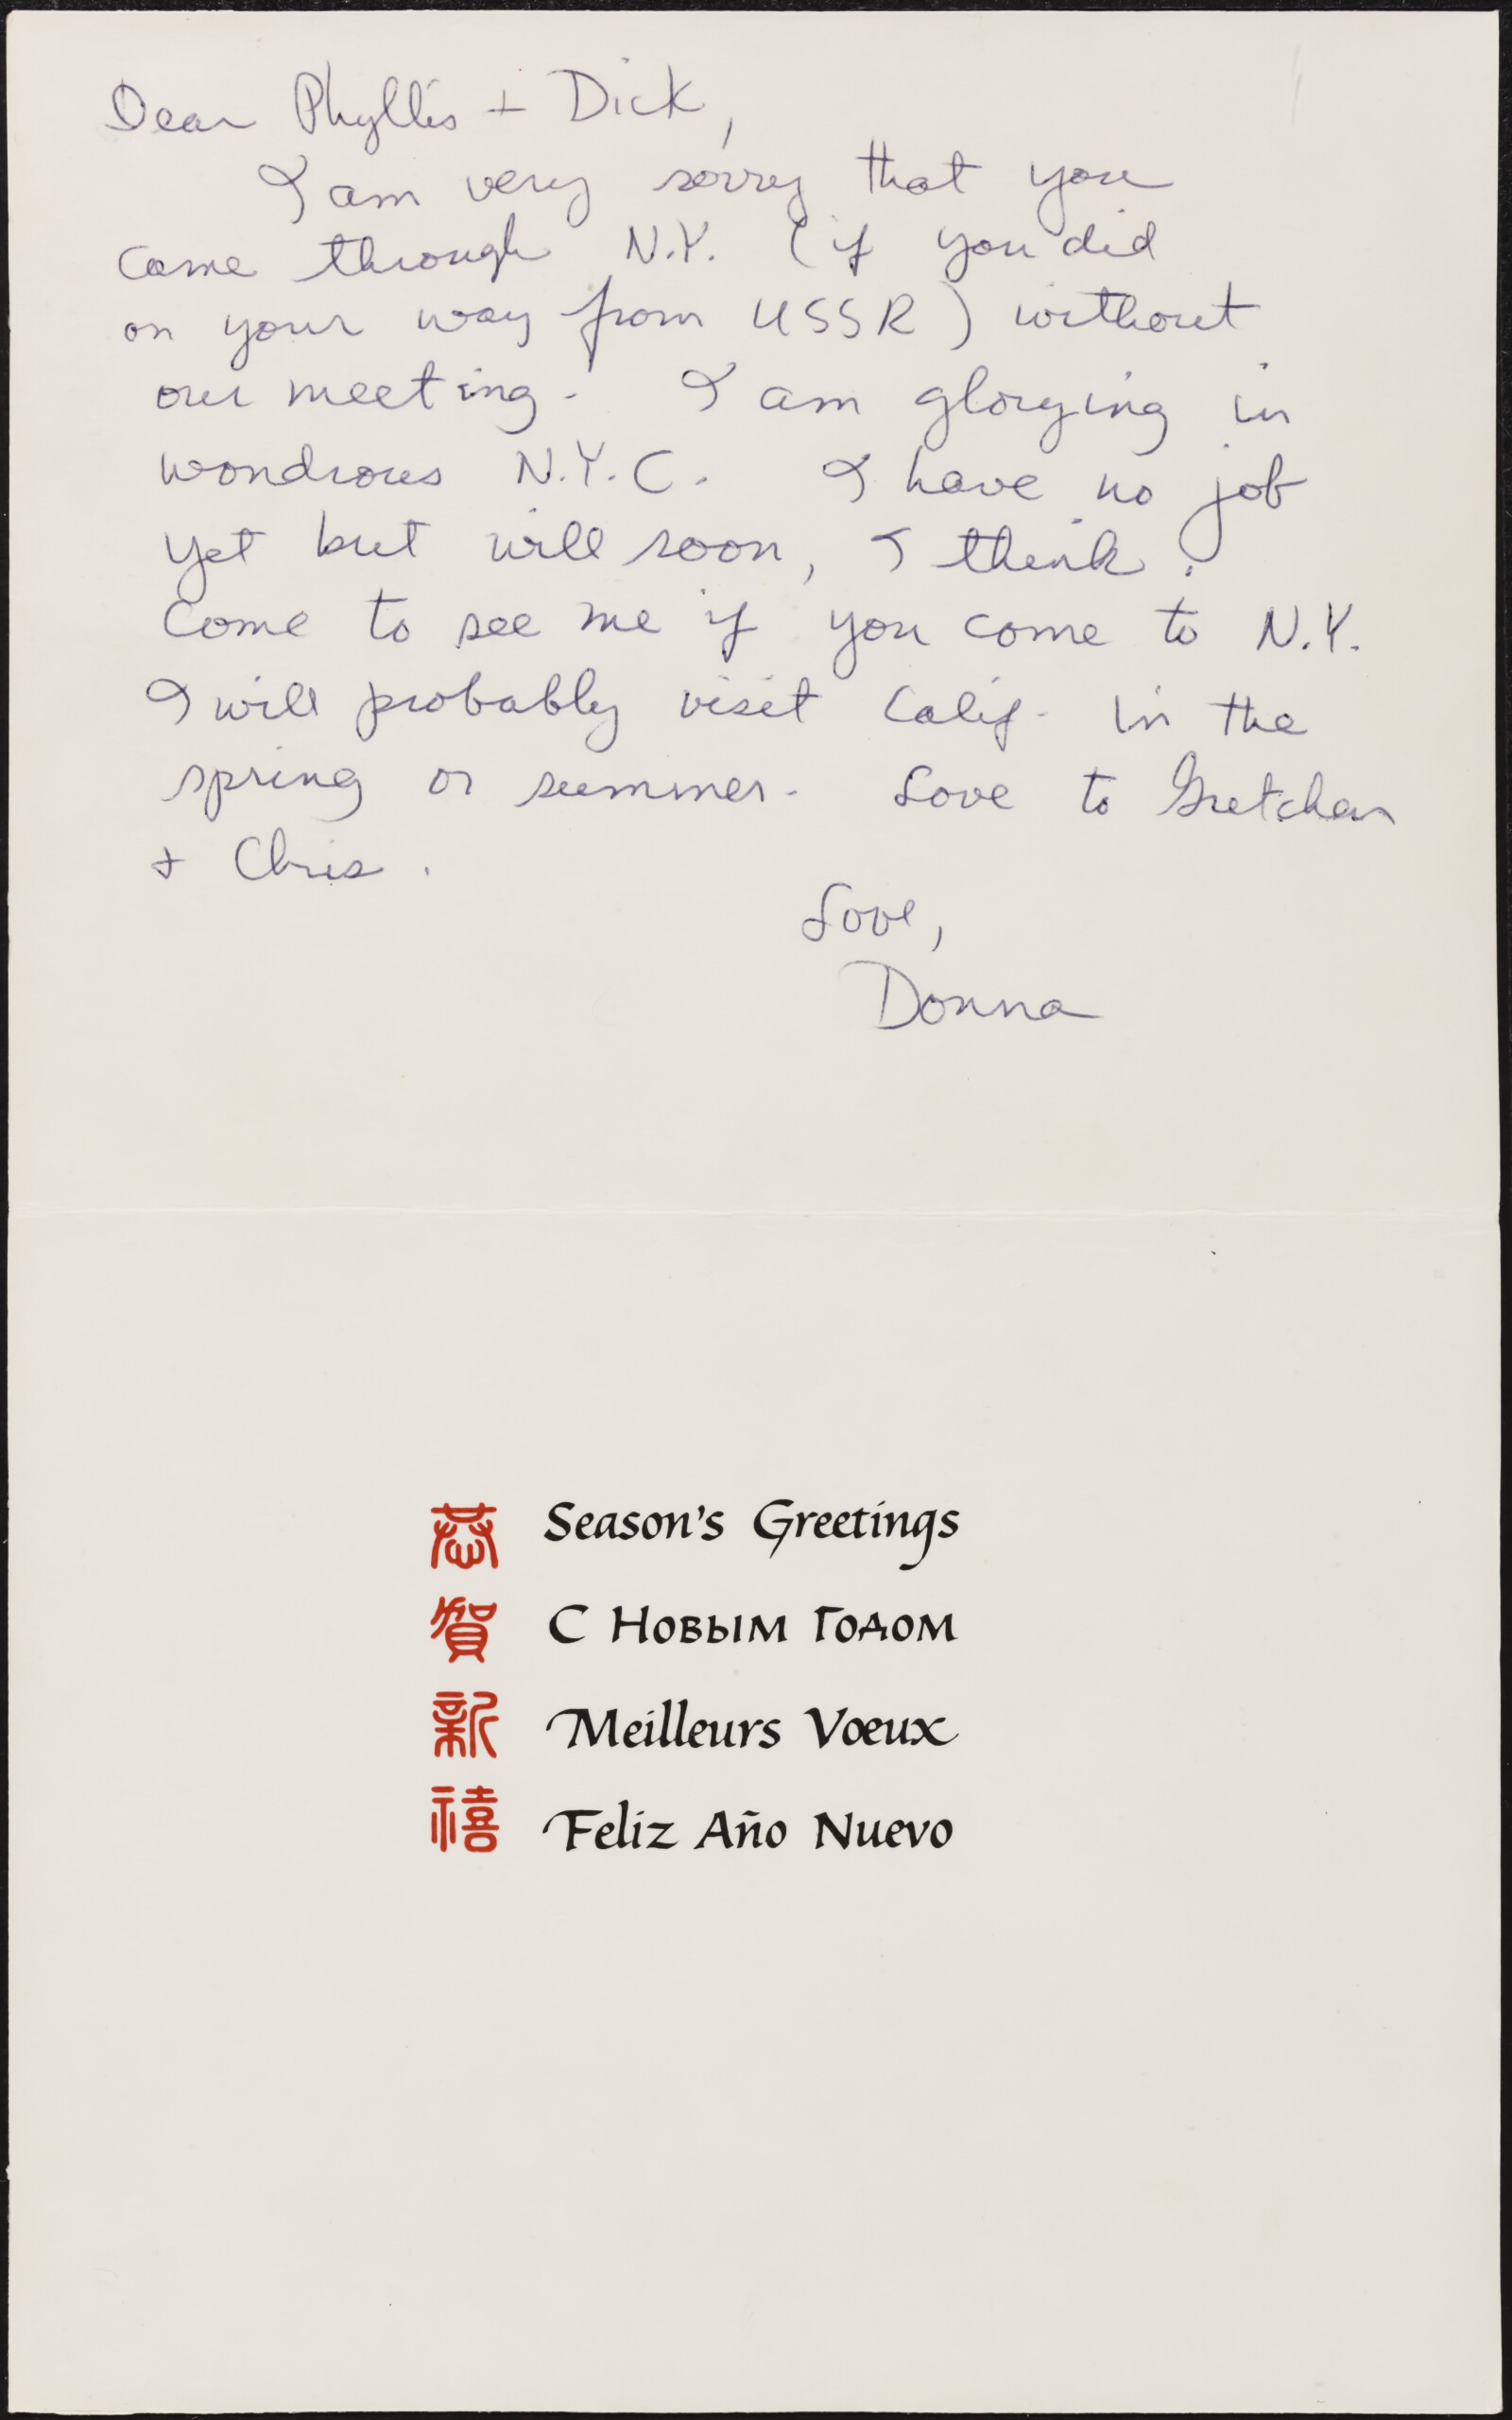 Dear Phyllis + Dick,
I am very sorry that you
came through N.Y. (if you did
on your way from USSR) without
our meeting. I am glorying in
wondrous N.Y.C. I have no job
yet but will soon, I think.
Come to see me if you come to N.Y.
I will probably visit Calif. in the
spring or summer. Love to Gretchen
+ Chris.
Love,
Donna
恭賀新禧
Season's Greetings
С Новым Годом
Meilleurs Vœux
Feliz Año Nuevo